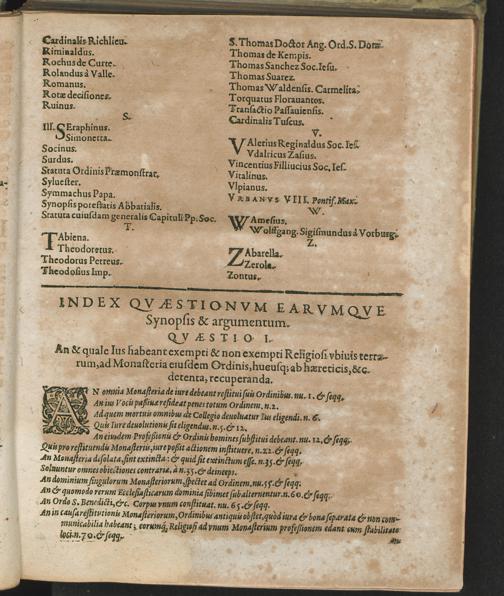 Cardinalis Richlieu.
Riminaldus.
Rochus de Curte.
Rolandus à Valle.
Romanus.
Rotæ decisiones.
Ruinus.
S.
Ill. Seraphinus.
Simonetta.
Socinus.
Surdus.
Statuta Ordinis Præmonstrat.
Syluester.
Symmachus Papa.
Synopsis potestatis Abbatialis.
Statuta cuiusdam generalis Capituli Pp. Soc.
T.
TAbiena.
Theodoretus.
Theodorus Petreus.
Theodosius Imp.
S. Thomas Doctor Ang. Ord. S. Dom.
Thomas de Kempis.
Thomas Sanchez Soc. Iesu.
Thomas Suarez.
Thomas Waldensis. Carmelita.
Torquatus Florauantos.
Transactio Passauiensis.
Cardinalis Tuscus.
V.
VAlerius Reginaldus Soc. Ies.
Vdalricus Zasius.
Vincentius Filliucius Soc. Ies.
Vitalinus.
Vlpianus.
VRBANVS VIII. Pontif. Max.
W.
WAmesius.
Wolffgang. Sigismundus à Vorburg.
Z.
ZAbarella.
Zerola.
Zontus.
INDEX QVÆSTIONVM EARVMQVE
Synopsis & argumentum.
QVÆSTIO I.
An & quale Ius habeant exempti & non exempti Religiosi vbiuis terra-
rum, ad Monasteria eiusdem Ordinis, hucusq; ab hæreticis, &c.
detenta, recuperanda.
AN omnia Monasteria de iure debeant restitui suis Ordinibus. nu. 1. & seqq.
An ius Vocū passiuæ resideat penes totum Ordinem. n. 2.
Ad quem mortuis omnibus de Collegio deuoluatur Ius eligendi. n. 6.
Quis Iure deuolutionis sit eligendus. n. 5. & 12.
An eiusdem Professionis & Ordinis homines substitui debeant. nu. 12. & seqq.
Quis pro restituendu Monasteriis, iure possit actionem instituere. n. 22. & seqq.
An Monasteria desolata, sint extincta: & quid sit extinctum esse. n. 35. & seqq.
Soluuntur omnes obiectiones contrariæ, à n. 35. & deinceps.
An dominium singulorum Monasteriorum, spectet ad Ordinem, nu. 55. & seqq.
An & quomodo rerum Ecclesiasticarum dominia sibimet subalternentur. n. 60. & seqq.
An Ordo S. Benedicti, &c. Corpus vnum constituat. nu. 65. & seqq.
An in causa restitutionis Monasteriorum, Ordinibus antiquis obstet, quòd iura & bona separata & non com-
municabilia habeant; eorumq; Religiosi ad vnum Monasterium professionem edant cum stabilitate
loci. n. 70. & seqq.